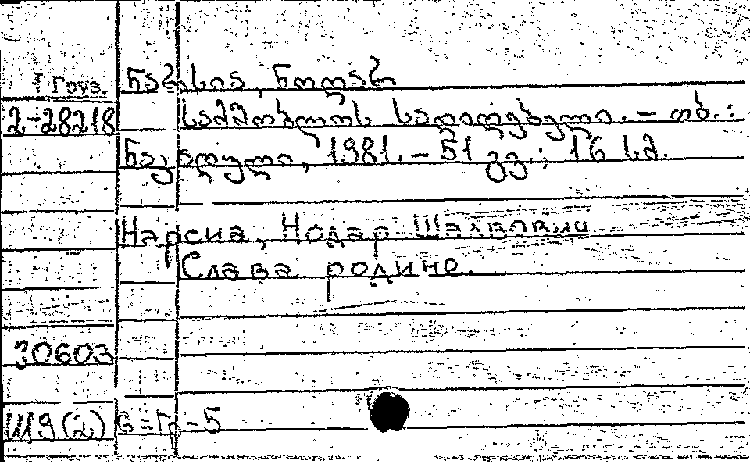 Груз. ნარსია, ნოდარ
2-28218 სამშობლოს სადიდებელი. – თბ.:
ნაკადული, 1981. – 51 გვ.; 16 სმ.
Нарсиа, Нодар Шалвович
Слава родине.
30603
Ш9(2)6=Гр-5